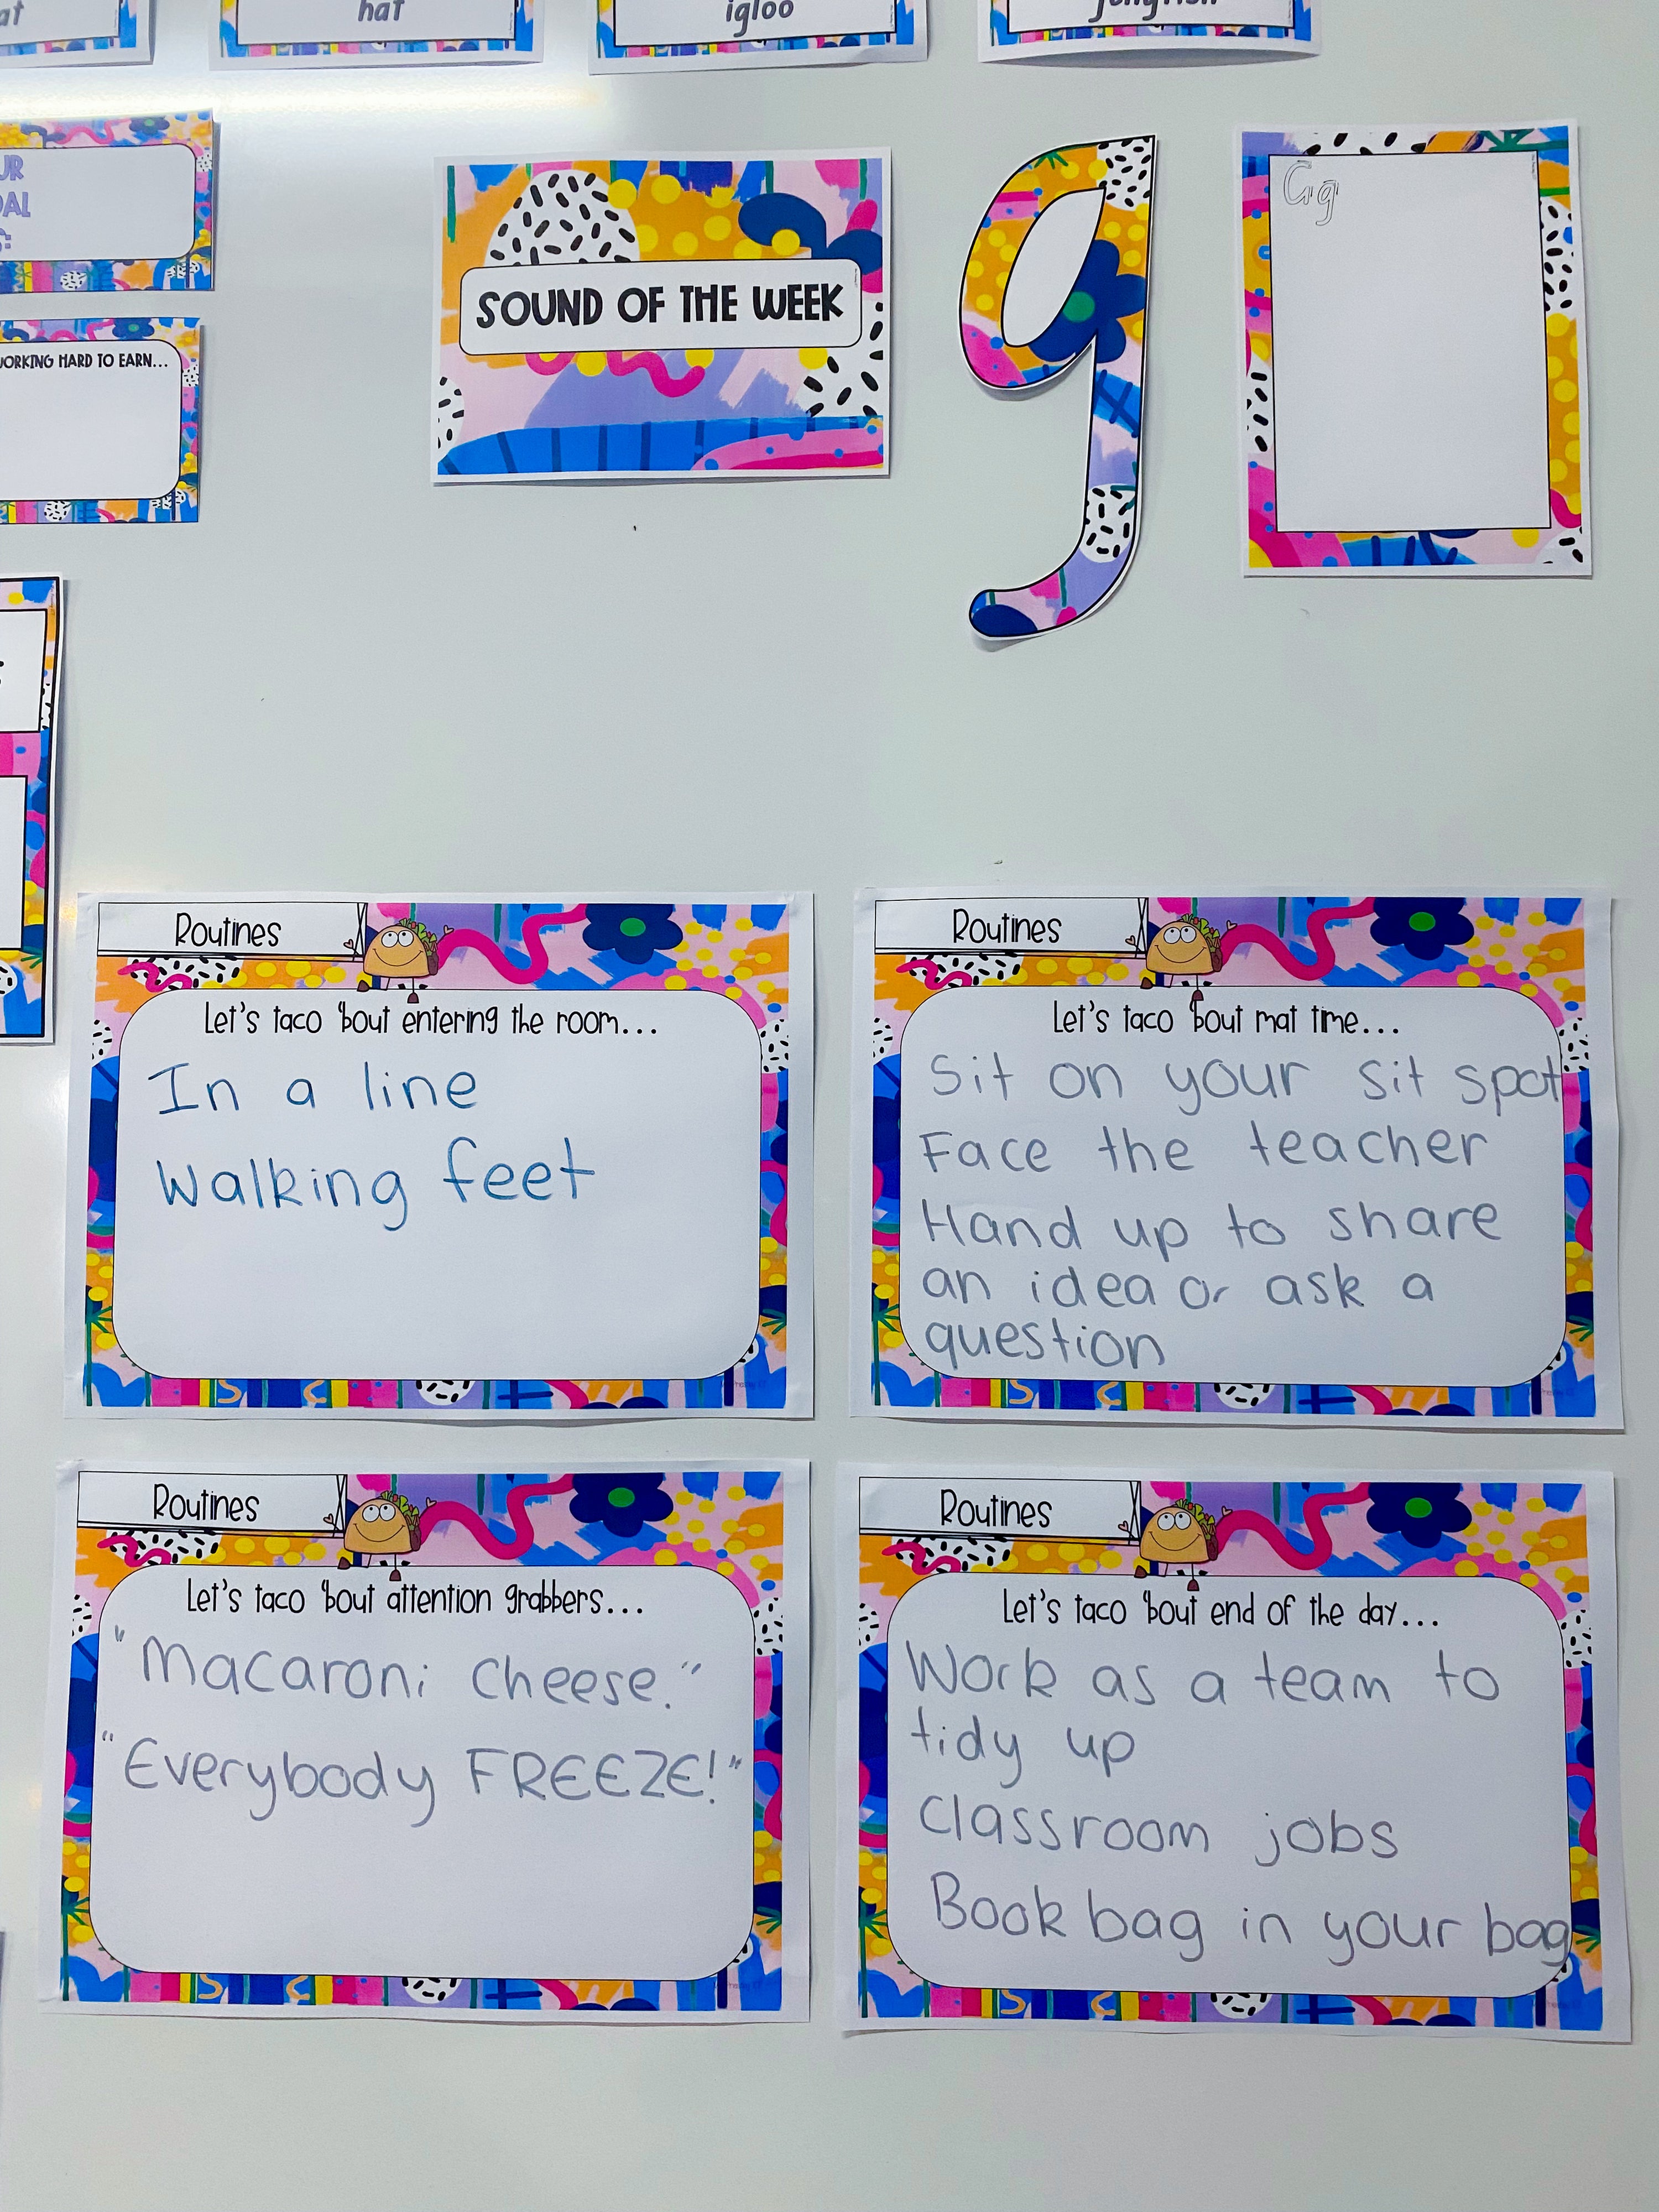 at
hat
igloo
jellyfish
UR
OAL
S:
WORKING HARD TO EARN...
SOUND OF THE WEEK
g
Gg
Routines
Let's taco 'bout entering the room...
In a line
Walking feet
Routines
Let's taco 'bout mat time...
Sit on your sit spot
Face the teacher
Hand up to share
an idea or ask a
question
Routines
Let's taco 'bout attention grabbers...
"Macaroni cheese."
"Everybody FREEZE!"
Routines
Let's taco 'bout end of the day...
Work as a team to
tidy up
Classroom jobs
Book bag in your bag